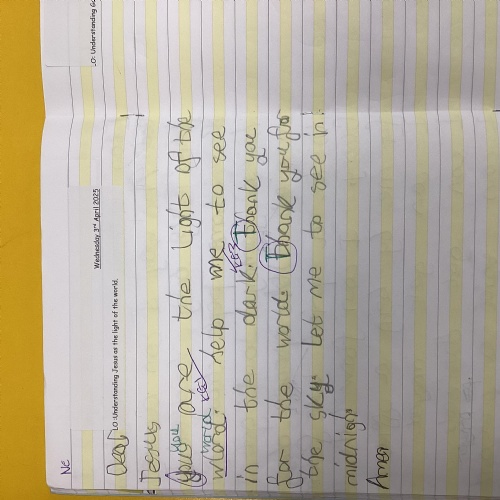 LO: Understanding Go
Wednesday 3rd April 2025
LO: Understanding Jesus as the light of the world.
Ne
Dear
Jesus
you
you are the Light of the
world KEY
world. help me to see
KEY
in the dark. Thank you
for the world. Thank you for
the sky. Let me to see in
midnight
Amen